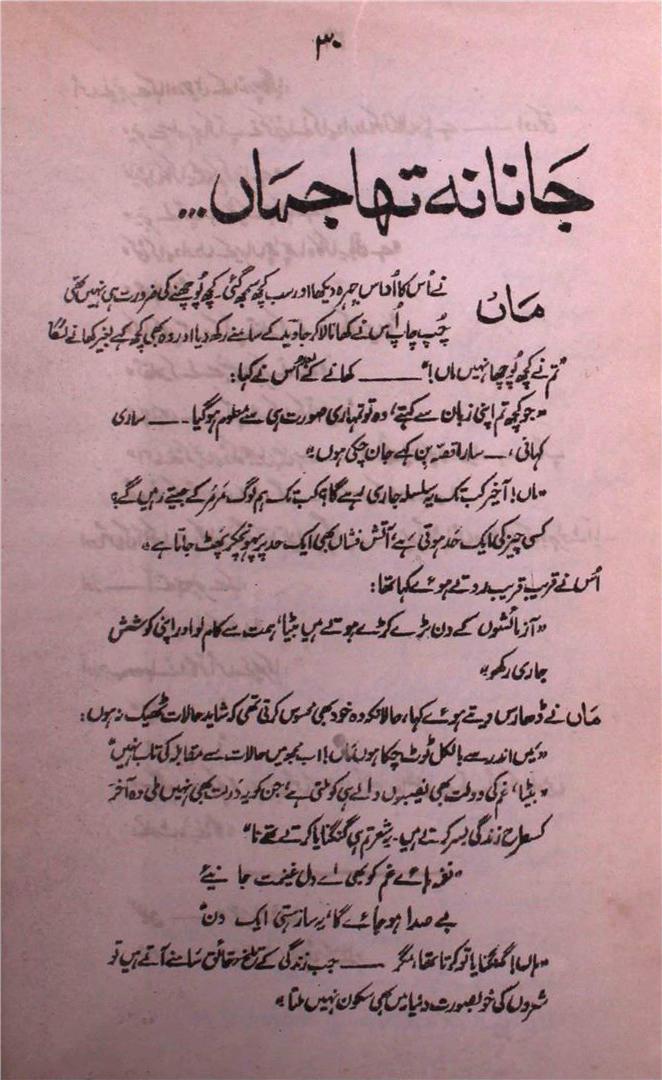 ۳۰
جانا نہ تھا جہاں...
ماں نے اُس کا اُداس چہرہ دیکھا اور سب کچھ سمجھ گئی۔ کچھ پُوچھنے کی ضرورت ہی نہیں تھی
چُپ چاپ اُس نے کھانا لا کر جاوید کے سامنے رکھ دیا اور وہ بھی کچھ کہے بغیر کھانے لگا
"تم نے کچھ پُوچھا نہیں ماں!" ـــــــ کھانے کے بعد اُس نے کہا:
"جو کچھ تم اپنی زبان سے کہتے، وہ تو تمہاری صورت ہی سے معلوم ہو گیا ـــ ساری
کہانی، ـــ سارا قصّہ بِن کہے جان چکی ہوں"
"ماں! آخر کب تک یہ سلسلہ جاری رہے گا؟ کب تک ہم لوگ مَر مَر کے جیتے رہیں گے؟
کسی چیز کی ایک حَد ہوتی ہے، آتش فشاں بھی ایک حد پر پہونچکر پھٹ جاتا ہے"
اُس نے قریب قریب روتے ہوئے کہا تھا:
"آزمائشوں کے دن بڑے کڑے ہوتے ہیں بیٹا، ہمت سے کام لو اور اپنی کوشش
جاری رکھو"
ماں نے ڈھارس دیتے ہوئے کہا، حالانکہ وہ خود بھی محسوس کرتی تھی کہ شاید حالات ٹھیک نہ ہوں:
"میں اندر سے بالکل ٹوٹ چکا ہوں ماں! اب مجھ میں حالات سے مقابلہ کی تاب نہیں"
"بیٹا، غم کی دولت بھی نصیبوں والے ہی کو ملتی ہے، جن کو یہ دَولت بھی نہیں ملی وہ آخر
کسطرح زندگی بسر کرتے ہیں۔ یہ شعر تم ہی گنگنایا کرتے تھے نا"
"نغمہ ہائے غم کو بھی اے دل غنیمت جانیئے
بے صدا ہو جائے گا، یہ سازِ ہستی ایک دن"
"ہاں! گنگنایا تو کرتا تھا، مگر ـــــ جب زندگی کے تلخ حقائق سامنے آتے ہیں تو
شعروں کی خوبصورت دنیا میں بھی سکون نہیں ملتا"